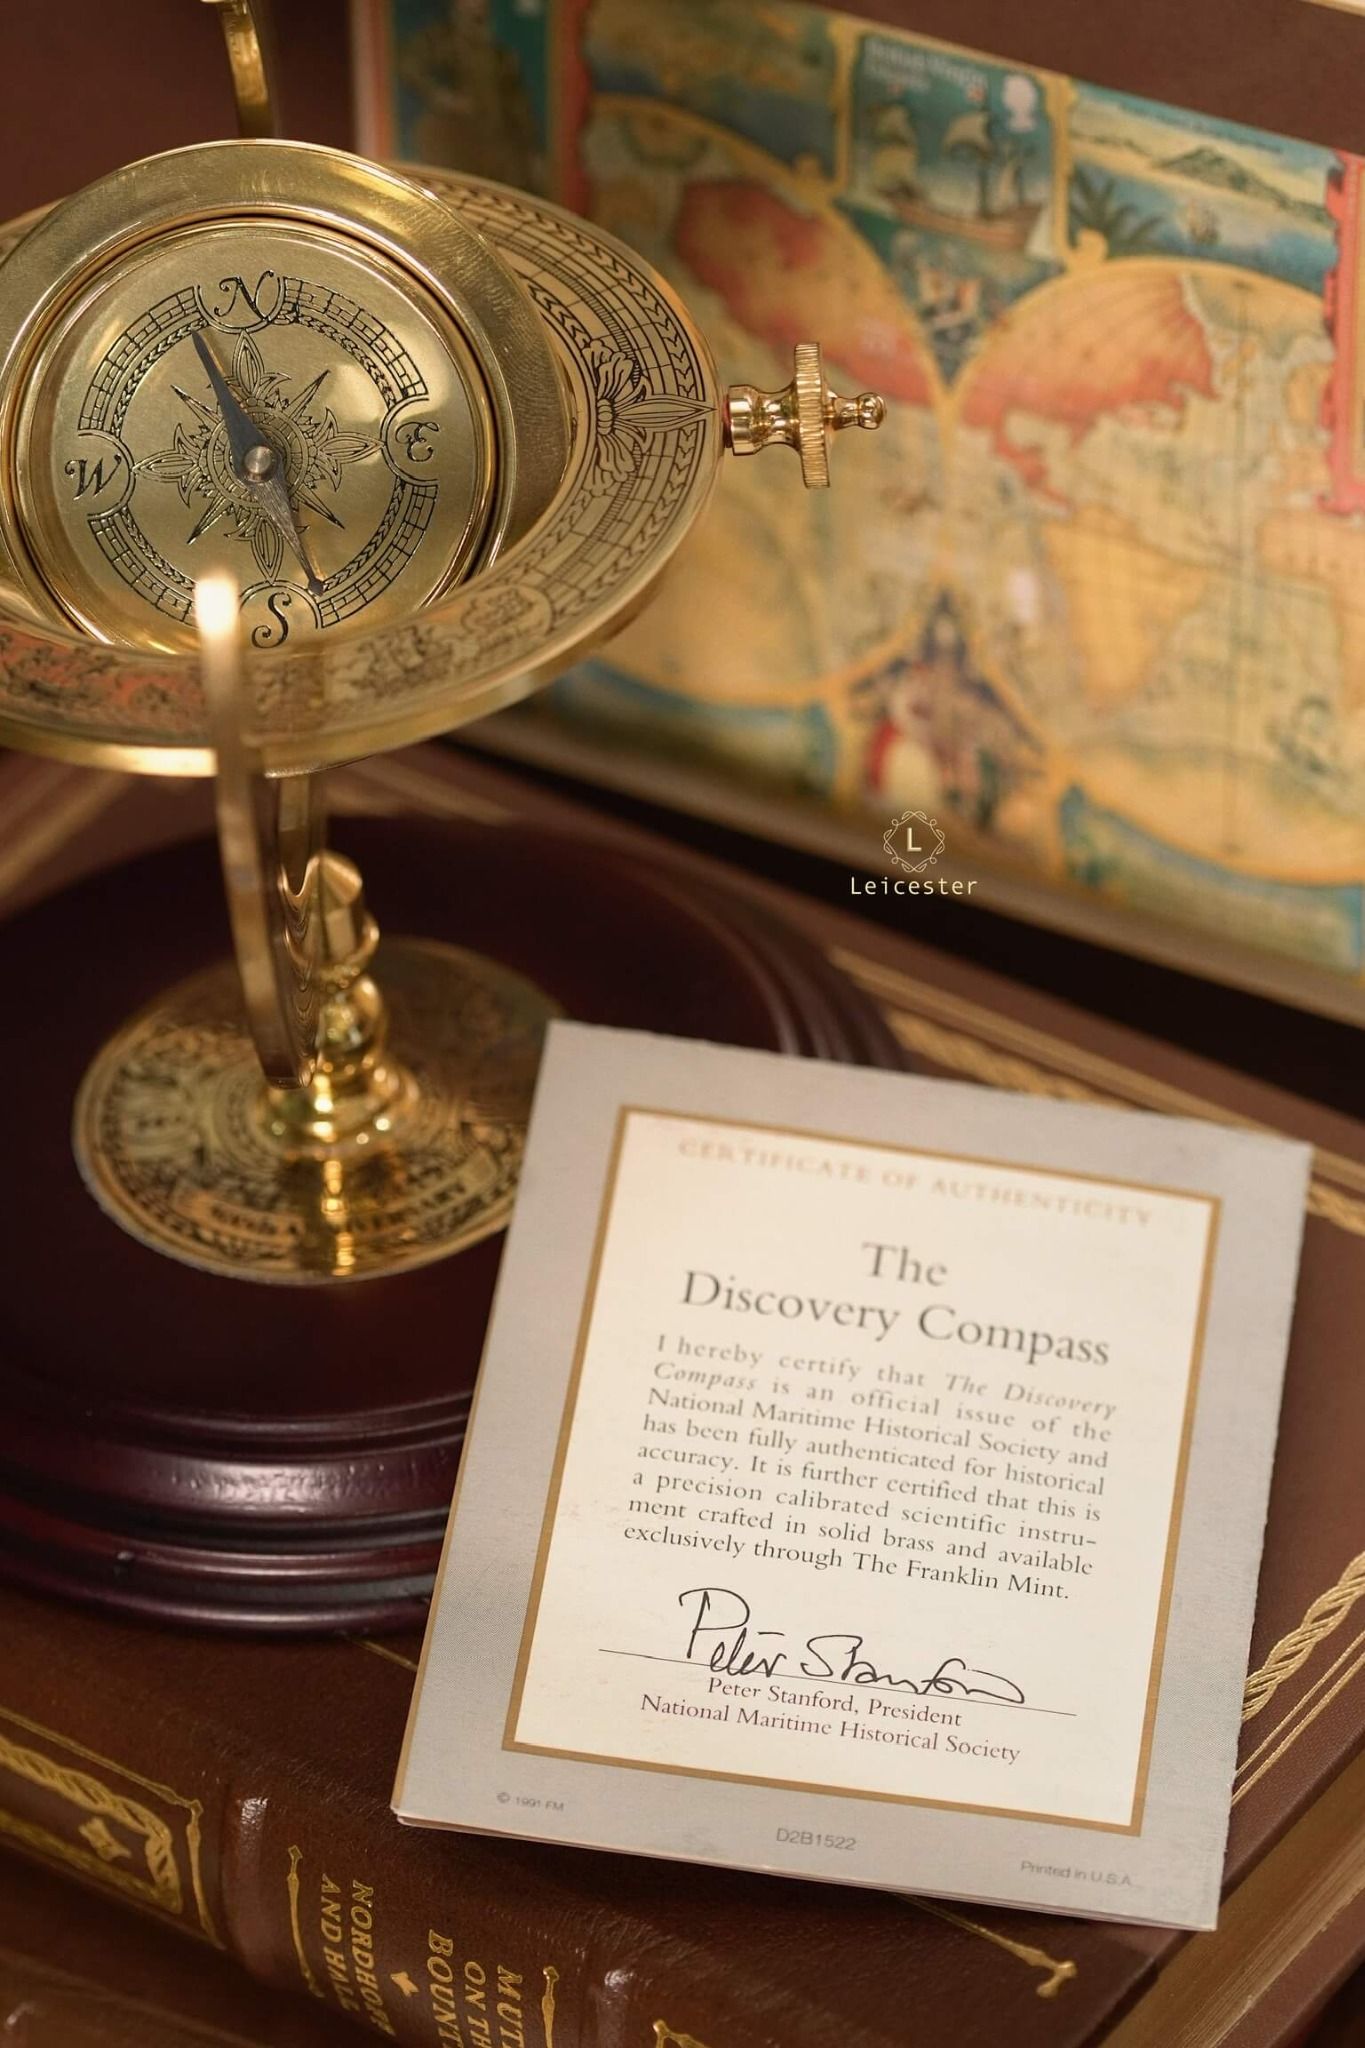 N
E
W
S
L
Leicester
CERTIFICATE OF AUTHENTICITY
The
Discovery Compass
I hereby certify that The Discovery
Compass is an official issue of the
National Maritime Historical Society and
has been fully authenticated for historical
accuracy. It is further certified that this is
a precision calibrated scientific instru-
ment crafted in solid brass and available
exclusively through The Franklin Mint.
Peter Stanford
Peter Stanford, President
National Maritime Historical Society
© 1991 FM
D2B1522
Printed in U.S.A.
NORDHOFF
AND HALL
MUT
ON TH
BOUNT